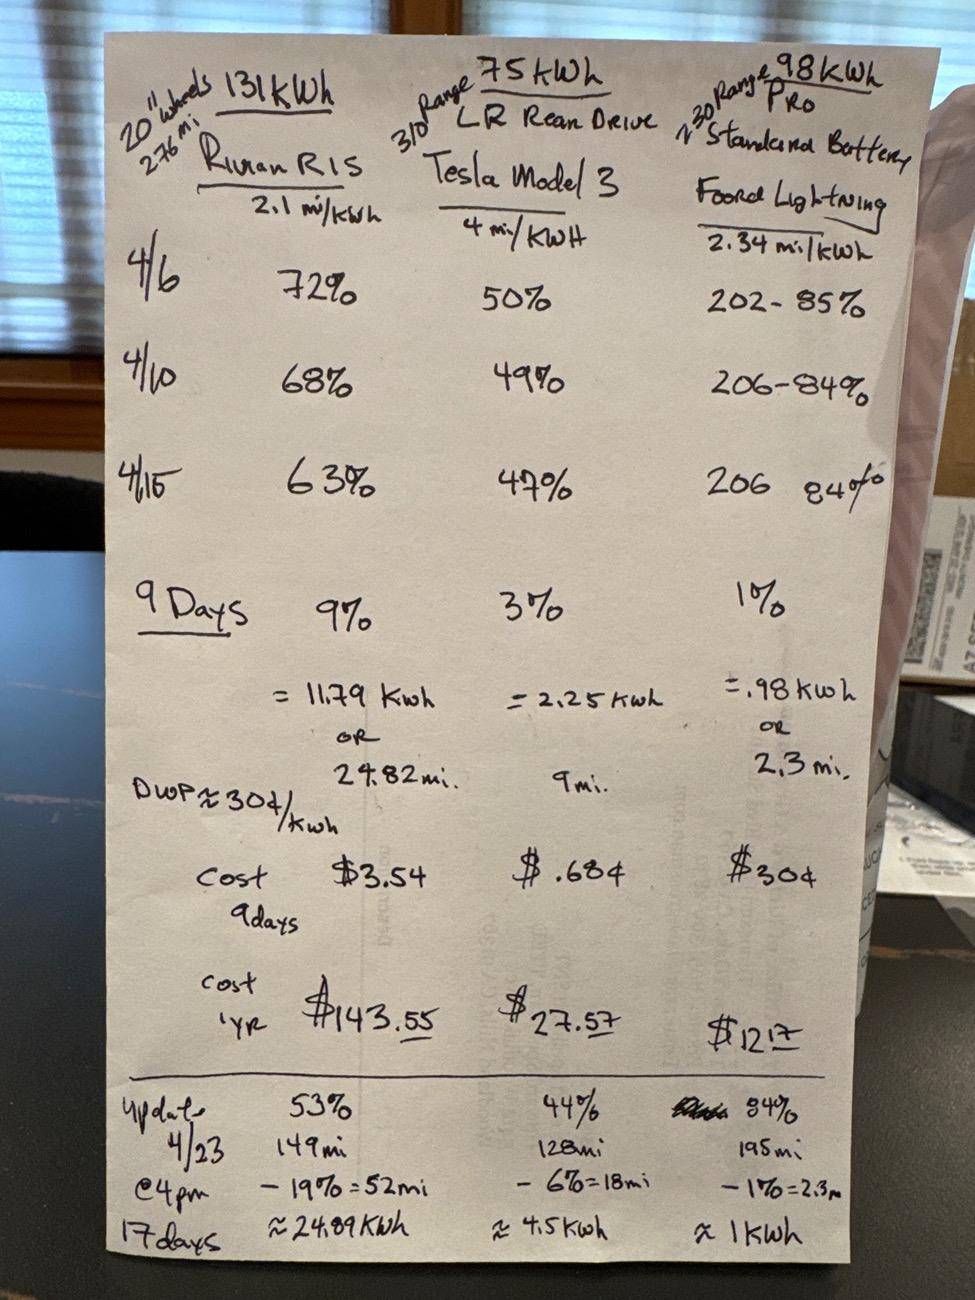 20" wheels 276 mi
131 kWh
Rivian R1S
2.1 mi/kWh
310 Range
75 kWh
LR Rear Drive
Tesla Model 3
4 mi/KWH
~230 Range
98 kWh
PRO
Standard Battery
Foord Lightning
2.34 mi/kWh
4/6 72% 50% 202-85%
4/10 68% 49% 206-84%
4/15 63% 47% 206 84%
9 Days 9% 3% 1%
= 11.79 Kwh = 2.25 Kwh = .98 Kwh
OR OR
24.82 mi. 9 mi. 2.3 mi.
DWP ≈ 30¢/kwh
Cost $3.54 $.68¢ $30¢
9days
Cost
1yr $143.55 $27.57 $12.17
update 53% 44% 84%
4/23 149 mi 128 mi 195 mi
@4pm -19% = 52 mi -6% = 18 mi -1% = 2.3 m
17 days ≈ 24.89 KWh ≈ 4.5 Kwh ≈ 1 KWh